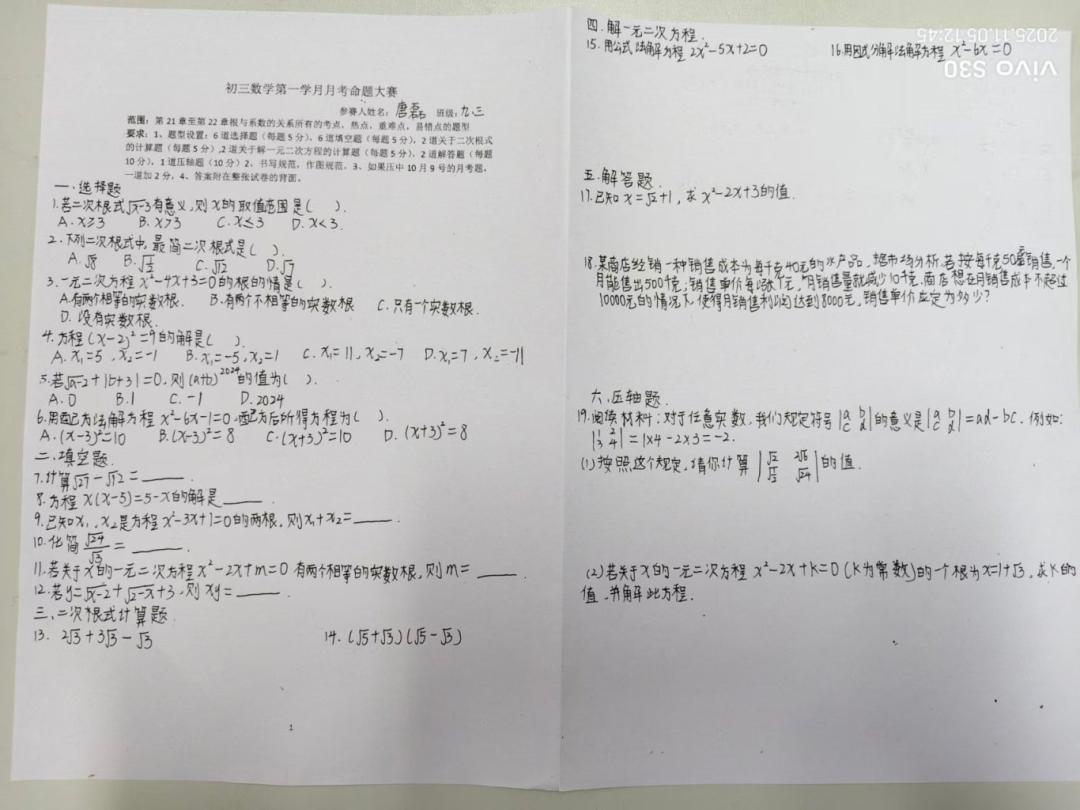 初三数学第一学月月考命题大赛
参赛人姓名：唐磊 班级：九.三
范围：第21章至第22章根与系数的关系所有的考点，热点，重难点，易错点的题型
要求：1、题型设置：6道选择题（每题5分），6道填空题（每题5分），2道关于二次根式
的计算题（每题5分）,2道关于解一元二次方程的计算题（每题5分），2道解答题（每题
10分），1道压轴题（10分）2、书写规范，作图规范。3、如果压中10月9号的月考题，
一道加2分，4、答案附在整张试卷的背面。
一.选择题
1.若二次根式√x-3有意义,则x的取值范围是( ).
A.x≥3 B.x>3 C.x≤3 D.x<3.
2.下列二次根式中,最简二次根式是( ).
A.√8 B.√½ C.√12 D.√7
3.一元二次方程x²-4x+3=0的根的情是( ).
A.有两个相等的实数根. B.有两个不相等的实数根 C.只有一个实数根.
D.没有实数根.
4.方程(x-2)²=9的解是( ).
A.x₁=5,x₂=-1 B.x₁=-5,x₂=1 C.x₁=11,x₂=-7 D.x₁=7,x₂=-11
5.若√a-2+|b+3|=0,则(a+b)²⁰²⁴的值为( ).
A.0 B.1 C.-1 D.2024
6.用配方法解方程x²-6x-1=0,配方后所得方程为( ).
A.(x-3)²=10 B.(x-3)²=8 C.(x+3)²=10 D.(x+3)²=8
二.填空题.
7.计算√27-√12=____.
8.方程x(x-5)=5-x的解是____.
9.已知x₁,x₂是方程x²-3x+1=0的两根,则x₁+x₂=____.
10.化简√24/√3=____.
11.若关于x的一元二次方程x²-2x+m=0有两个相等的实数根,则m=____.
12.若y=√x-2+√2-x+3,则xy=____.
三.二次根式计算题.
13. 2√3+3√3-√3 14.(√5+√3)(√5-√3)
1
四.解一元二次方程.
15.用公式法解方程2x²-5x+2=0 16.用因式分解法解方程x²-6x=0
五.解答题.
17.已知x=√2+1,求x²-2x+3的值.
18.某商店经销一种销售成本为每千克40元的水产品,据市场分析,若按每千克50元销售,一个
月能售出500千克;销售单价每涨1元,月销售量就减少10千克.商店想在月销售成本不超过
10000元的情况下,使得月销售利润达到8000元,销售单价应定为多少?
六.压轴题.
19.阅读材料:对于任意实数,我们规定符号|a b; c d|的意义是|a b; c d|=ad-bc.例如:
|1 2; 3 4|=1×4-2×3=-2.
(1)按照这个规定,请你计算|√2 2√6; √3 √24|的值.
(2)若关于x的一元二次方程x²-2x+k=0(k为常数)的一个根为x=1+√3,求k的
值,并解此方程.
2025.11.05 12:45
vivo S30